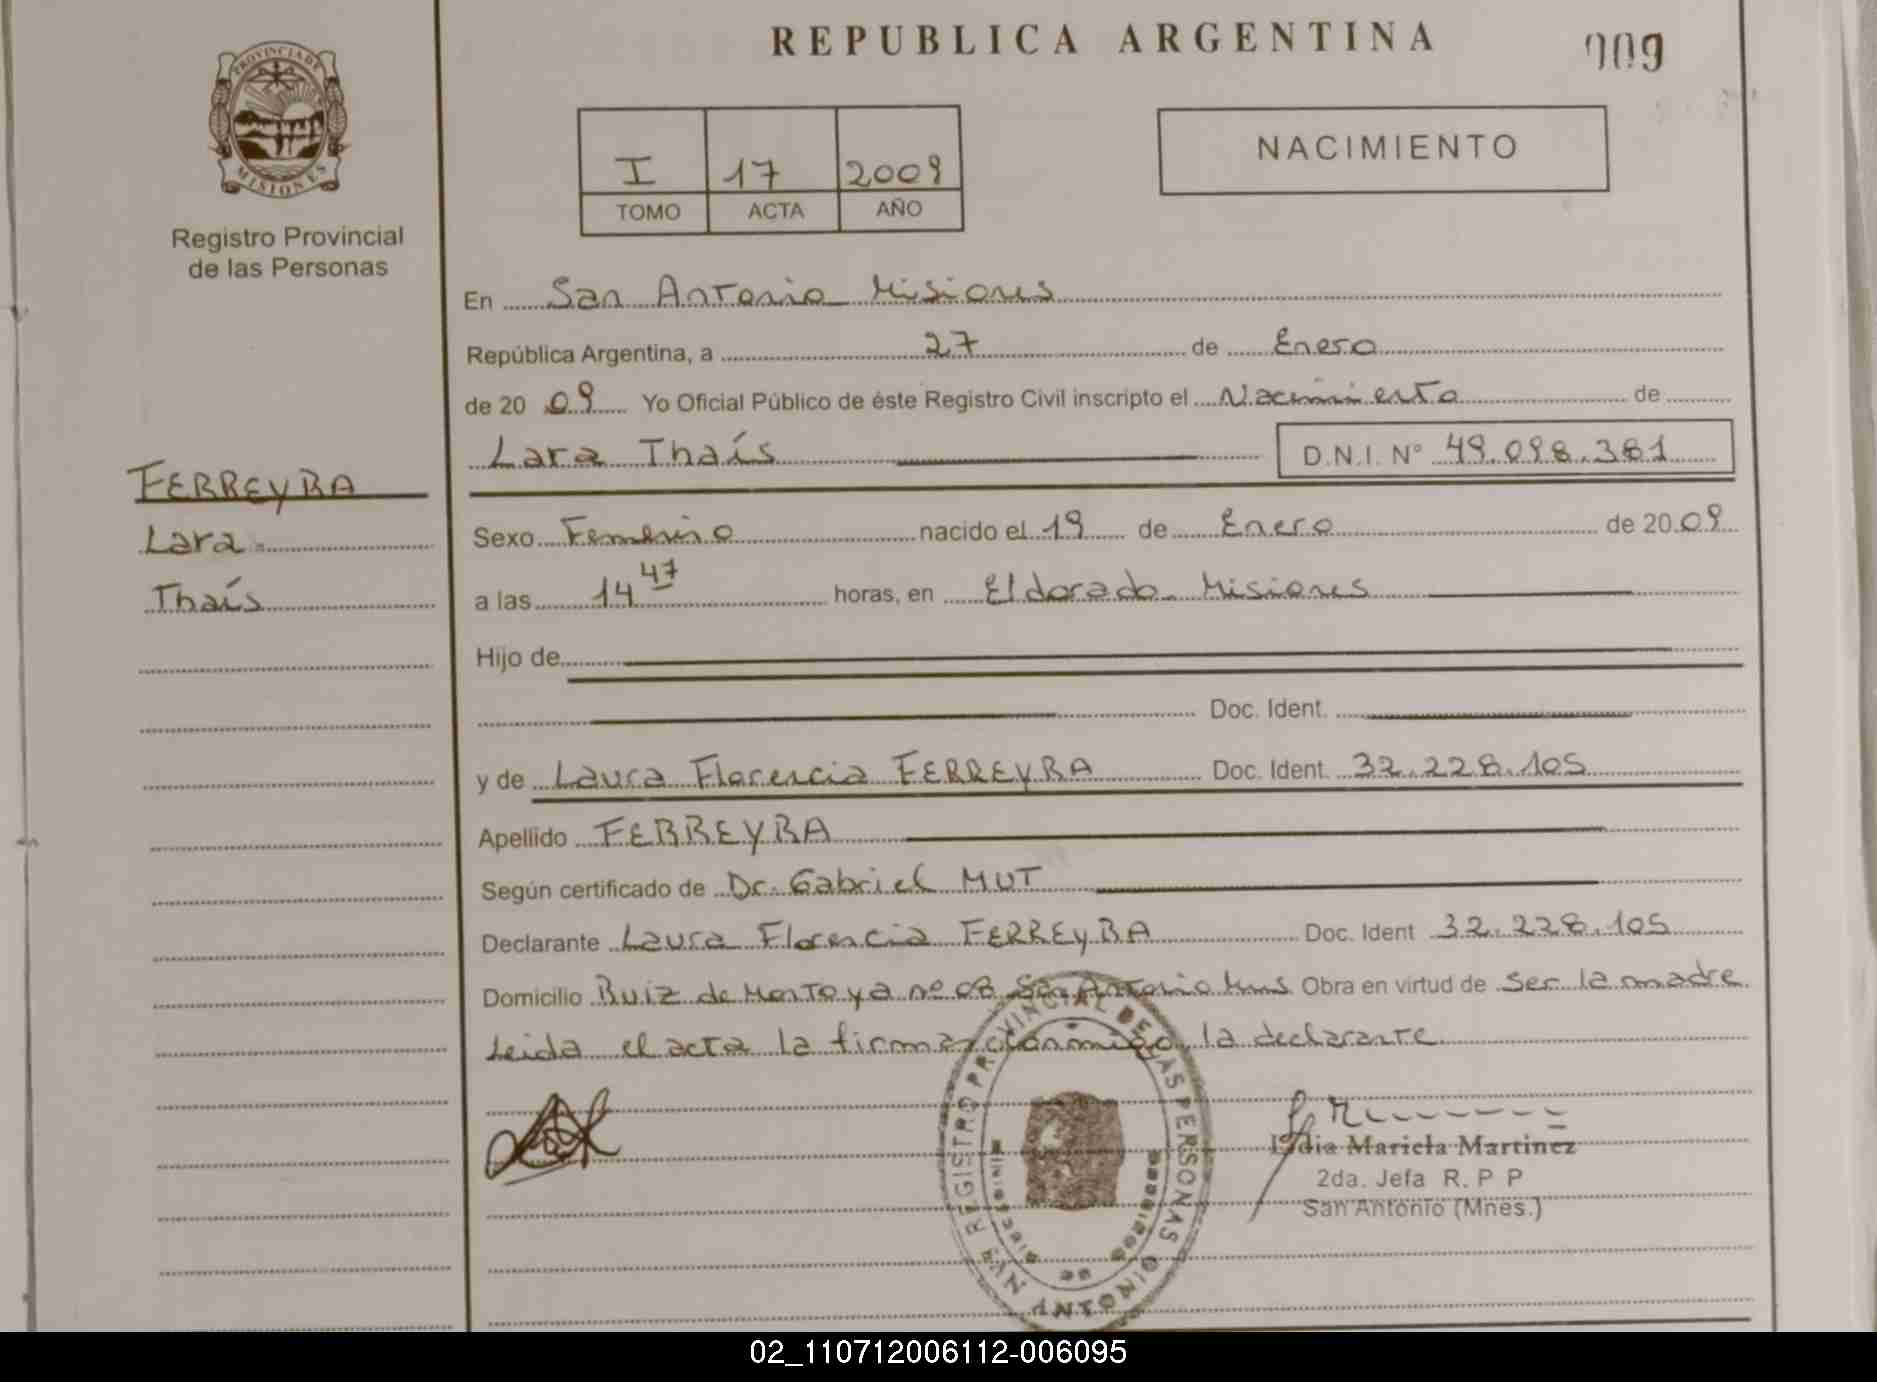 REPUBLICA ARGENTINA
009
PROVINCIA DE MISIONES
Registro Provincial
de las Personas
I 17 2009
TOMO ACTA AÑO
NACIMIENTO
En San Antonio Misiones
República Argentina, a 27 de Enero
de 20 09 Yo Oficial Público de éste Registro Civil inscripto el Nacimiento de
Lara Thaís D.N.I. N° 49.098.381
FERREYRA
Lara
Thaís
Sexo Femenino nacido el 19 de Enero de 20 09
a las 14 47 horas, en Eldorado Misiones
Hijo de
Doc. Ident.
y de Laura Florencia FERREYRA Doc. Ident. 32.228.105
Apellido FERREYRA
Según certificado de Dr. Gabriel MUT
Declarante Laura Florencia FERREYRA Doc. Ident 32.228.105
Domicilio Ruiz de Montoya nº 08 San Antonio Mns Obra en virtud de Ser la madre
Leida el acta la firma conmigo la declarante
REGISTRO PROVINCIAL DE LAS PERSONAS
Lydia Mariela Martinez
2da. Jefa R. P P
San Antonio (Mnes.)
02_110712006112-006095